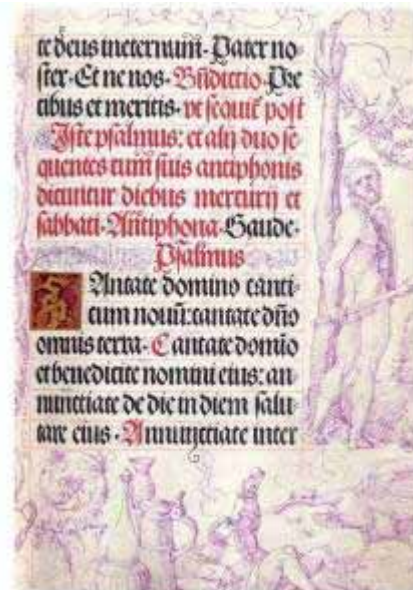 te deus in eternum. Pater no
ster. Et ne nos. Bñdictio. Pre
cibus et meritis. vt sequit̃ post
Iste psalmus: et alij duo se
quentes cum suis antiphonis
dicuntur diebus mercurij et
sabbati. Antiphona. Gaude.
Psalmus
Cantate domino canti
cum nouũ: cantate dño
omnis terra. Cantate domĩo
et benedicite nomini eius: an
nunctiate de die in diem salu
tare eius. Annunctiate inter